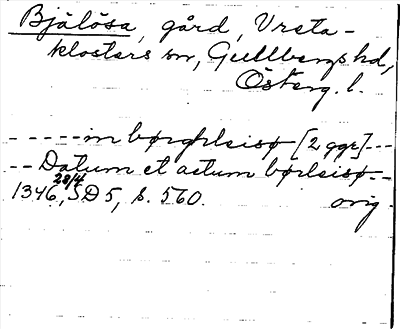 Bjälösa, gård, Vreta-
klosters sn, Gullbergs hd,
Österg. l.
-----in børghleisø [2 ggr]---
--Datum et actum børleisø--
1346 28/4, SD 5, s. 560. orig.